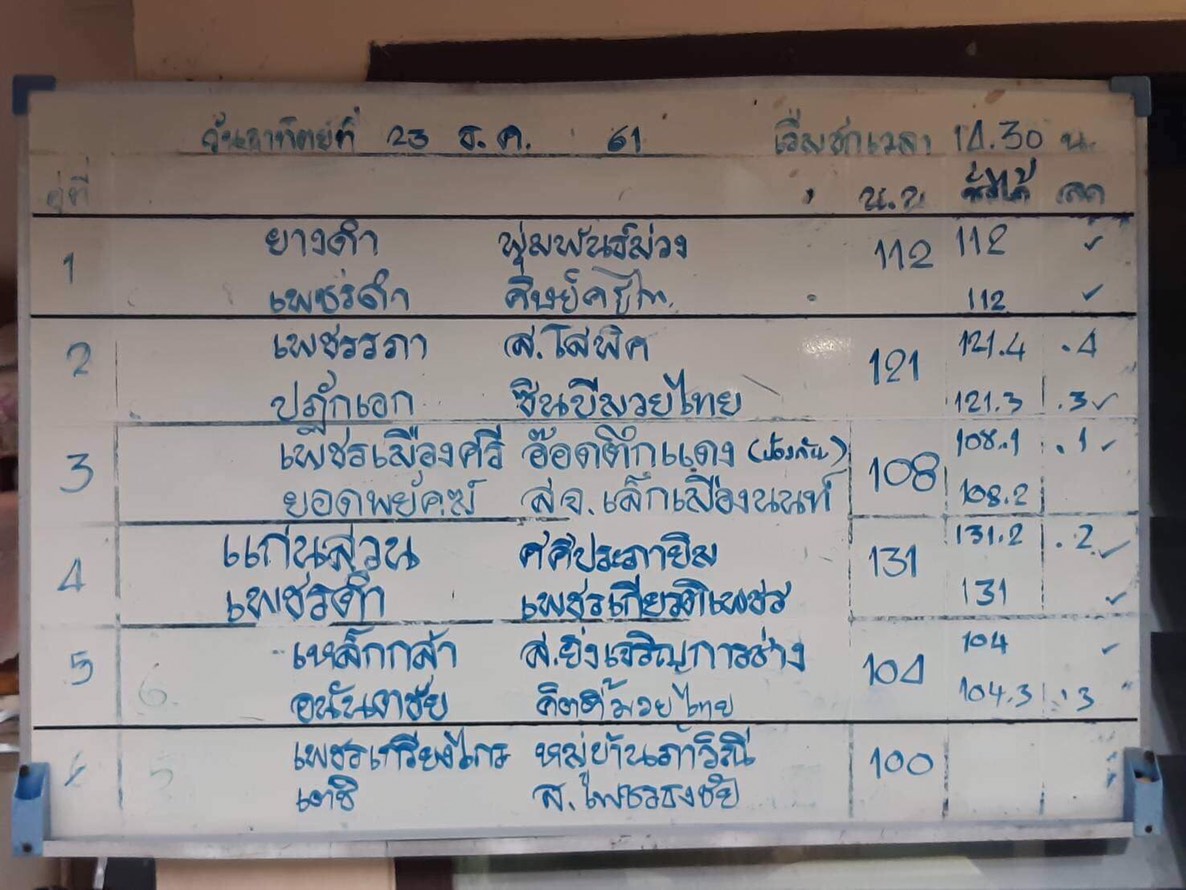 วันอาทิตย์ที่ 23 ธ.ค. 61 เริ่มชกเวลา 14.30 น.
คู่ที่ น.น. ชั่งได้ ลด
1 ยางดำ พุ่มพันธ์ม่วง 112 112 ✓
เพชรดำ 112 ✓
2 เพชรรภา ส.โสพิศ 121 121.4 .4
ปฎักเอก ซินบีมวยไทย 121.3 .3 ✓
3 เพชรเมืองศรี อ๊อดตึกแดง (ป้องกัน) 108 108.1 .1 ✓
ยอดพยัคฆ์ ส.จ.เล็กเมืองนนท์ 108.2
4 แก่นสวน ศศิประภายิม 131 131.2 .2 ✓
เพชรดำ เพชรเกียรติเพชร 131 ✓
5 เหล็กกล้า ส.ยิ่งเจริญการช่าง 104 104 ✓
อนันตชัย มวยไทย 104.3 .3
เพชรเกรียงไกร หมู่บ้านภาวิณี 100
เตชิ ส.เพชรธงชัย